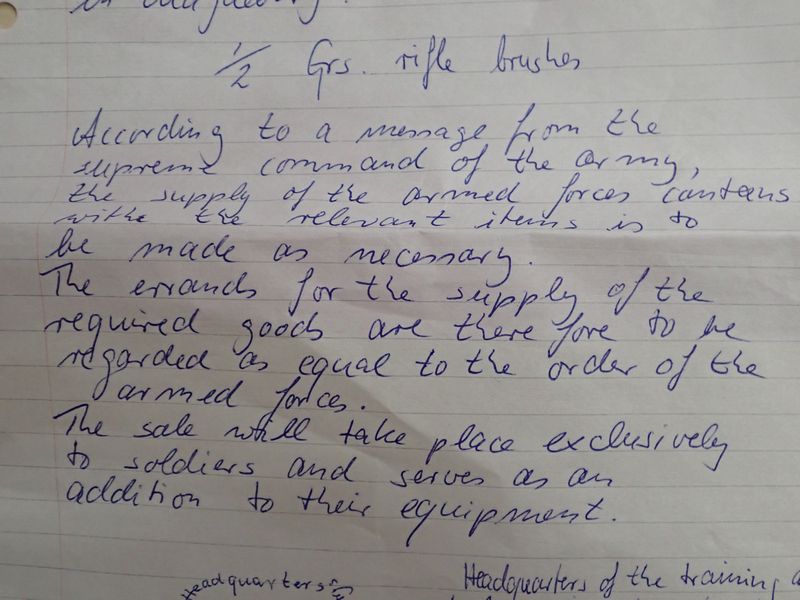 1/2 Grs. rifle brushes
According to a message from the
supreme command of the army,
the supply of the armed forces canteens
withe the relevant items is to
be made as necessary.
The errands for the supply of the
required goods are there fore to be
regarded as equal to the order of the
armed forces.
The sale will take place exclusively
to soldiers and serves as an
addition to their equipment.
Headquarters
Headquarters of the training